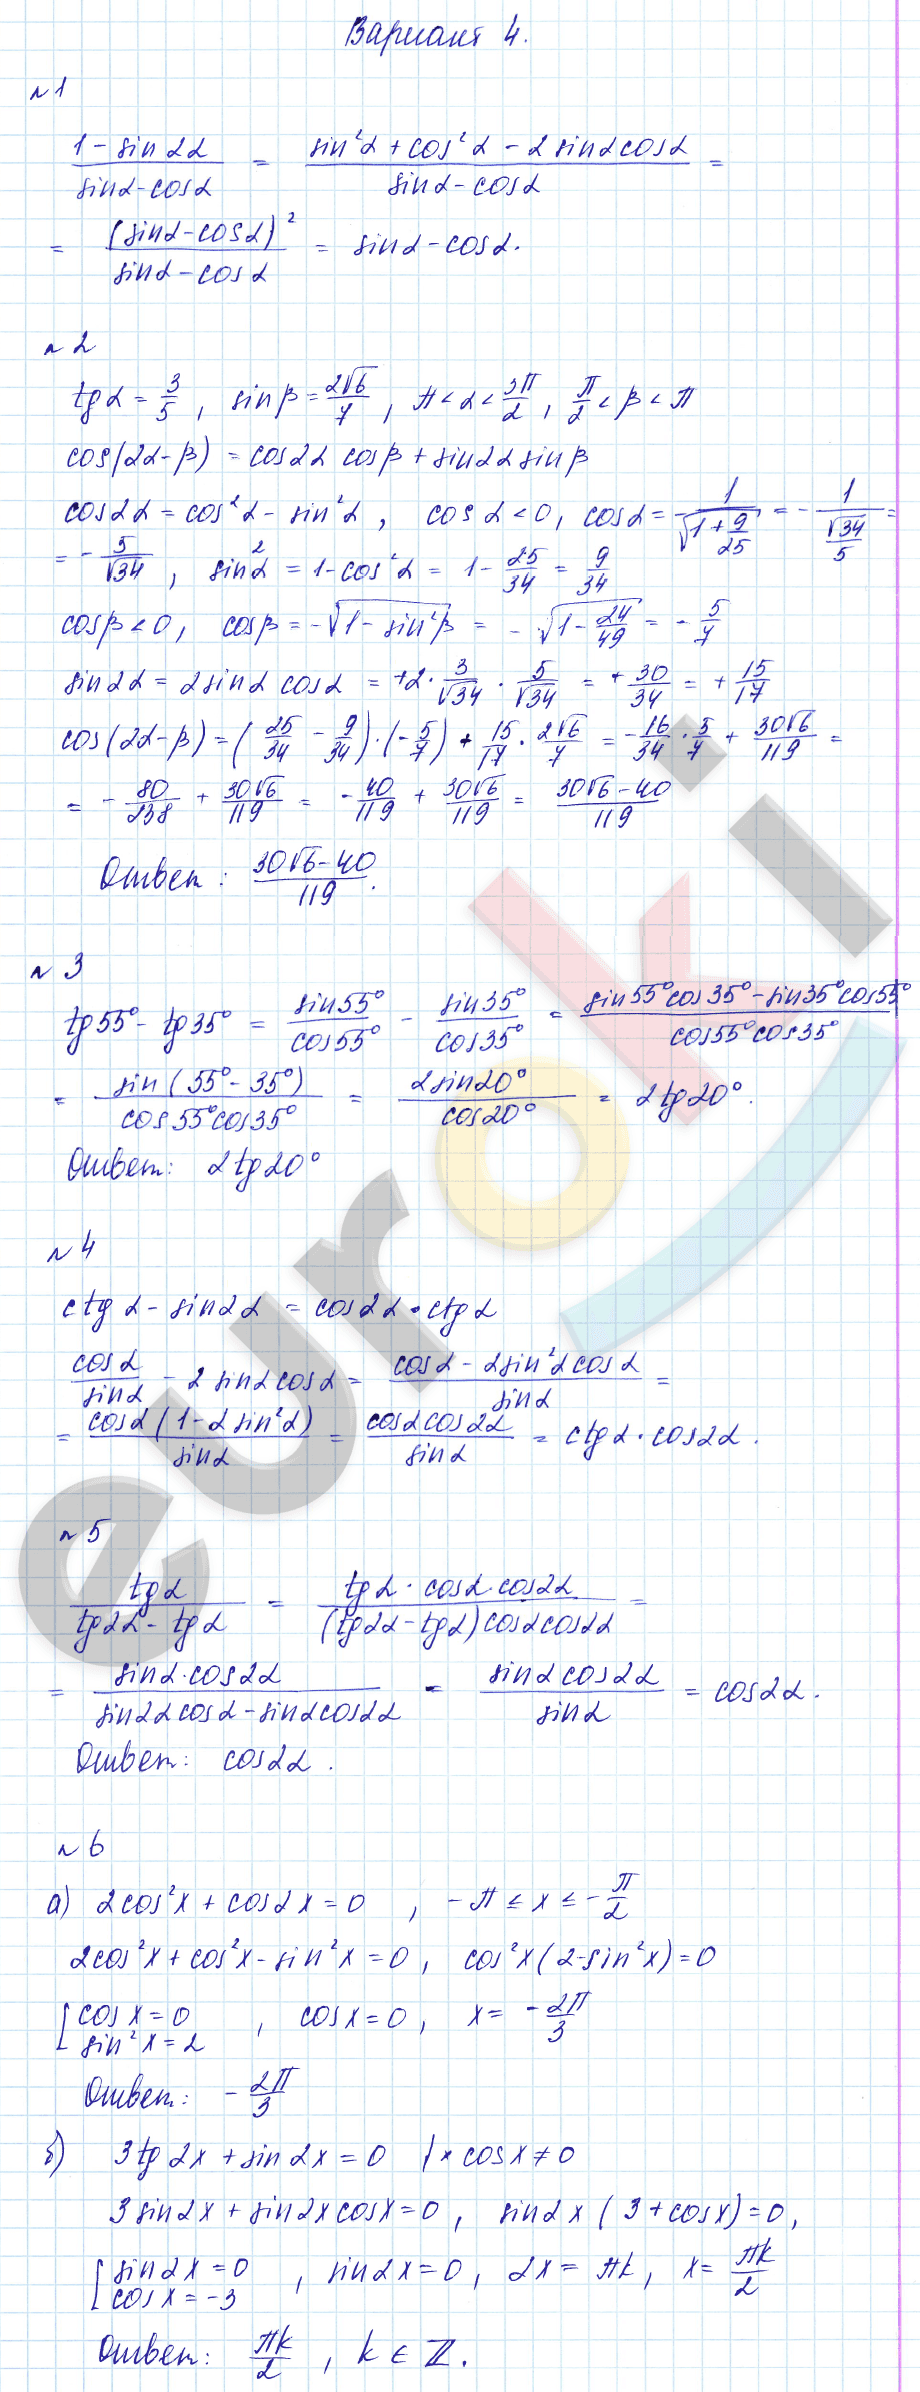 Вариант 4.
№1
(1 - sin 2α)/(sinα - cosα) = (sin²α + cos²α - 2 sinα cosα)/(sinα - cosα) =
= (sinα - cosα)²/(sinα - cosα) = sinα - cosα.
№2
tgα = 3/5, sinβ = 2√6/7, π < α < 3π/2, π/2 < β < π
cos(2α - β) = cos2α cosβ + sin2α sinβ
cos2α = cos²α - sin²α, cosα < 0, cosα = 1/√(1 + 9/25) = - 1/(√34/5) =
= - 5/√34, sin²α = 1 - cos²α = 1 - 25/34 = 9/34
cosβ < 0, cosβ = -√(1 - sin²β) = - √(1 - 24/49) = - 5/7
sin2α = 2 sinα cosα = +2 · 3/√34 · 5/√34 = + 30/34 = + 15/17
cos(2α - β) = (25/34 - 9/34) · (- 5/7) + 15/17 · 2√6/7 = - 16/34 · 5/7 + 30√6/119 =
= - 80/238 + 30√6/119 = - 40/119 + 30√6/119 = (30√6 - 40)/119
Ответ: (30√6 - 40)/119.
№3
tg55° - tg35° = sin55°/cos55° - sin35°/cos35° = (sin55°cos35° - sin35°cos55°)/(cos55°cos35°)
= sin(55° - 35°)/(cos55°cos35°) = 2sin20°/cos20° = 2tg20°.
Ответ: 2tg20°
№4
ctgα - sin2α = cos2α · ctgα
cosα/sinα - 2 sinα cosα = (cosα - 2sin²α cosα)/sinα =
= cosα(1 - 2sin²α)/sinα = cosα cos2α/sinα = ctgα · cos2α.
№5
tgα/(tg2α - tgα) = (tgα · cosα · cos2α)/((tg2α - tgα)cosαcos2α) =
= (sinα · cos2α)/(sin2αcosα - sinαcos2α) = sinαcos2α/sinα = cos2α.
Ответ: cos2α.
№6
а) 2cos²x + cos2x = 0, -π ≤ x ≤ -π/2
2cos²x + cos²x - sin²x = 0, cos²x(2-sin²x) = 0
[cosx = 0
sin²x = 2, cosx = 0, x = -2π/3
Ответ: -2π/3
б) 3tg2x + sin2x = 0 | × cosx ≠ 0
3sin2x + sin2xcosx = 0, sin2x(3 + cosx) = 0,
[sin2x = 0
cosx = -3, sin2x = 0, 2x = πk, x = πk/2
Ответ: πk/2, k ∈ ℤ.
euroki